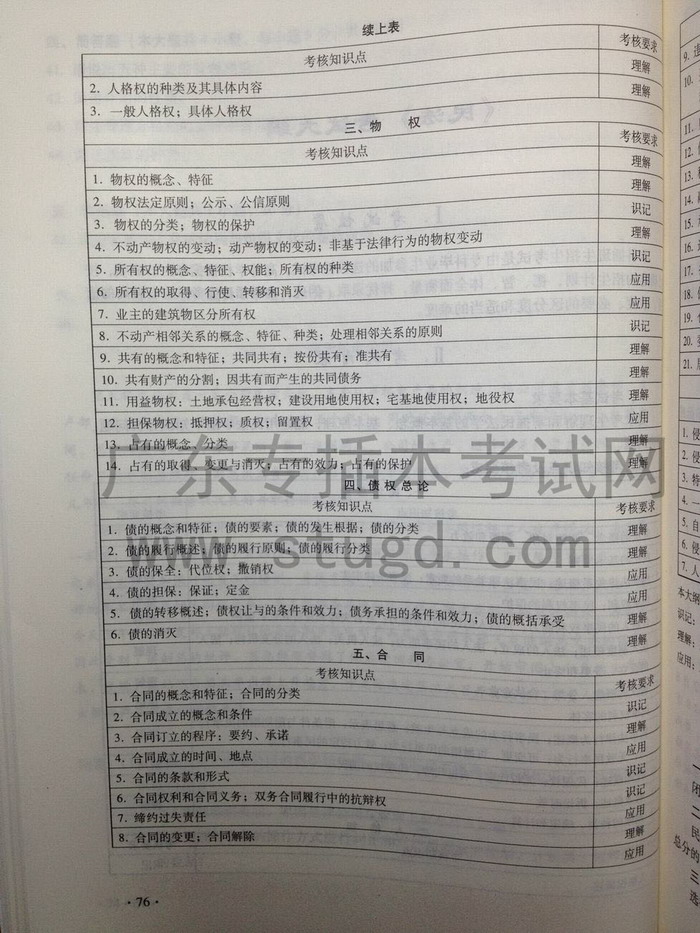 续上表
考核知识点 考核要求
2. 人格权的种类及其具体内容 理解
3. 一般人格权；具体人格权 理解
三、物 权
考核知识点 考核要求
1. 物权的概念、特征 理解
2. 物权法定原则；公示、公信原则 理解
3. 物权的分类；物权的保护 识记
4. 不动产物权的变动；动产物权的变动；非基于法律行为的物权变动 理解
5. 所有权的概念、特征、权能；所有权的种类 识记
6. 所有权的取得、行使、转移和消灭 应用
7. 业主的建筑物区分所有权 应用
8. 不动产相邻关系的概念、特征、种类；处理相邻关系的原则 识记
9. 共有的概念和特征；共同共有；按份共有；准共有 理解
10. 共有财产的分割；因共有而产生的共同债务 理解
11. 用益物权：土地承包经营权；建设用地使用权；宅基地使用权；地役权 理解
12. 担保物权：抵押权；质权；留置权 应用
13. 占有的概念、分类 理解
14. 占有的取得、变更与消灭；占有的效力；占有的保护 理解
广东专插本考试网
四、债权总论
考核知识点 考核要求
1. 债的概念和特征；债的要素；债的发生根据；债的分类 理解
2. 债的履行概述；债的履行原则；债的履行分类 理解
www.stugd.com
3. 债的保全：代位权；撤销权 应用
4. 债的担保：保证；定金 应用
5. 债的转移概述：债权让与的条件和效力；债务承担的条件和效力；债的概括承受 理解
6. 债的消灭 理解
五、合 同
考核知识点 考核要求
1. 合同的概念和特征；合同的分类 识记
2. 合同成立的概念和条件 理解
3. 合同订立的程序：要约、承诺 应用
4. 合同成立的时间、地点 识记
5. 合同的条款和形式 识记
6. 合同权利和合同义务；双务合同履行中的抗辩权 应用
7. 缔约过失责任 理解
8. 合同的变更；合同解除 应用
· 76 ·
本大纲
识记：
理解：
应用：
总分的